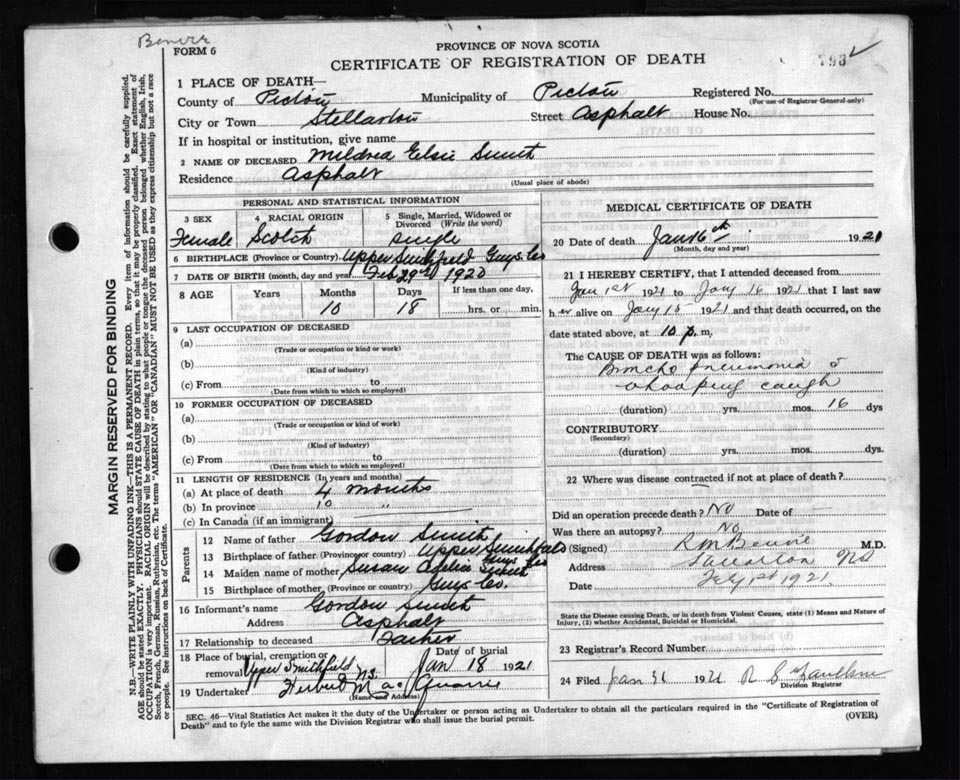 FORM 6
PROVINCE OF NOVA SCOTIA
CERTIFICATE OF REGISTRATION OF DEATH
1 PLACE OF DEATH—
County of Pictou Municipality of Pictou Registered No.
(For use of Registrar General only)
City or Town Stellarton Street Asphalt House No.
If in hospital or institution, give name
2 NAME OF DECEASED Mildred Elsie Smith
Residence Asphalt
(Usual place of abode)
PERSONAL AND STATISTICAL INFORMATION
3 SEX 4 RACIAL ORIGIN 5 Single, Married, Widowed or Divorced (Write the word)
Female Scotch single
6 BIRTHPLACE (Province or Country) Upper Smithfield Guys. Co
7 DATE OF BIRTH (month, day and year) Feb 29th 1920
8 AGE Years Months Days If less than one day,
10 18 hrs. or min.
9 LAST OCCUPATION OF DECEASED
(a)
(Trade or occupation or kind of work)
(b)
(Kind of industry)
(c) From to
(Date from which to which so employed)
10 FORMER OCCUPATION OF DECEASED
(a)
(Trade or occupation or kind of work)
(b)
(Kind of industry)
(c) From to
(Date from which to which so employed)
11 LENGTH OF RESIDENCE (In years and months)
(a) At place of death 4 months
(b) In province 10 "
(c) In Canada (if an immigrant)
Parents
12 Name of father Gordon Smith
13 Birthplace of father (Province or country) Upper Smithfield Guys Co
14 Maiden name of mother Susan Smith
15 Birthplace of mother (Province or country) Guys. Co.
16 Informant's name Gordon Smith
Address Asphalt
17 Relationship to deceased Father
18 Place of burial, cremation or removal Upper Smithfield N.S. Date of burial Jan 18 1921
19 Undertaker Herbert
MEDICAL CERTIFICATE OF DEATH
20 Date of death Jan 16th 1921
(Month, day and year)
21 I HEREBY CERTIFY, that I attended deceased from
Jan 1st 1921 to Jany 16 1921 that I last saw
her alive on Jany 15 1921 and that death occurred, on the
date stated above, at 10 p. m.
The CAUSE OF DEATH was as follows:
Broncho pneumonia
whooping cough
(duration) yrs. mos. 16 dys
CONTRIBUTORY
(Secondary)
(duration) yrs. mos. dys
22 Where was disease contracted if not at place of death?
Did an operation precede death? No Date of —
Was there an autopsy? No
(Signed)
Address Stellarton NS
Date Feb 1st 1921
State the Disease causing Death, or in death from Violent Causes, state (1) Means and Nature of
Injury, (2) whether Accidental, Suicidal or Homicidal.
23 Registrar's Record Number
24 Filed Jan 31 1921
Division Registrar
SEC. 46—Vital Statistics Act makes it the duty of the Undertaker or person acting as Undertaker to obtain all the particulars required in the "Certificate of Registration of
Death" and to fyle the same with the Division Registrar who shall issue the burial permit.
(OVER)
MARGIN RESERVED FOR BINDING
N.B.—WRITE PLAINLY WITH UNFADING INK—THIS IS A PERMANENT RECORD. Every item of information should be carefully supplied.
AGE should be stated EXACTLY. PHYSICIANS should STATE CAUSE OF DEATH in plain terms, so that it may be properly classified. Exact statement of
OCCUPATION is very important. RACIAL ORIGIN will be described by stating to what people or tongue the deceased person belonged whether English, Irish,
Scotch, French, German, Russian, Ruthenian, etc. The terms "AMERICAN" or "CANADIAN" MUST NOT BE USED as they express citizenship but not a race
or people. See instructions on back of Certificate.